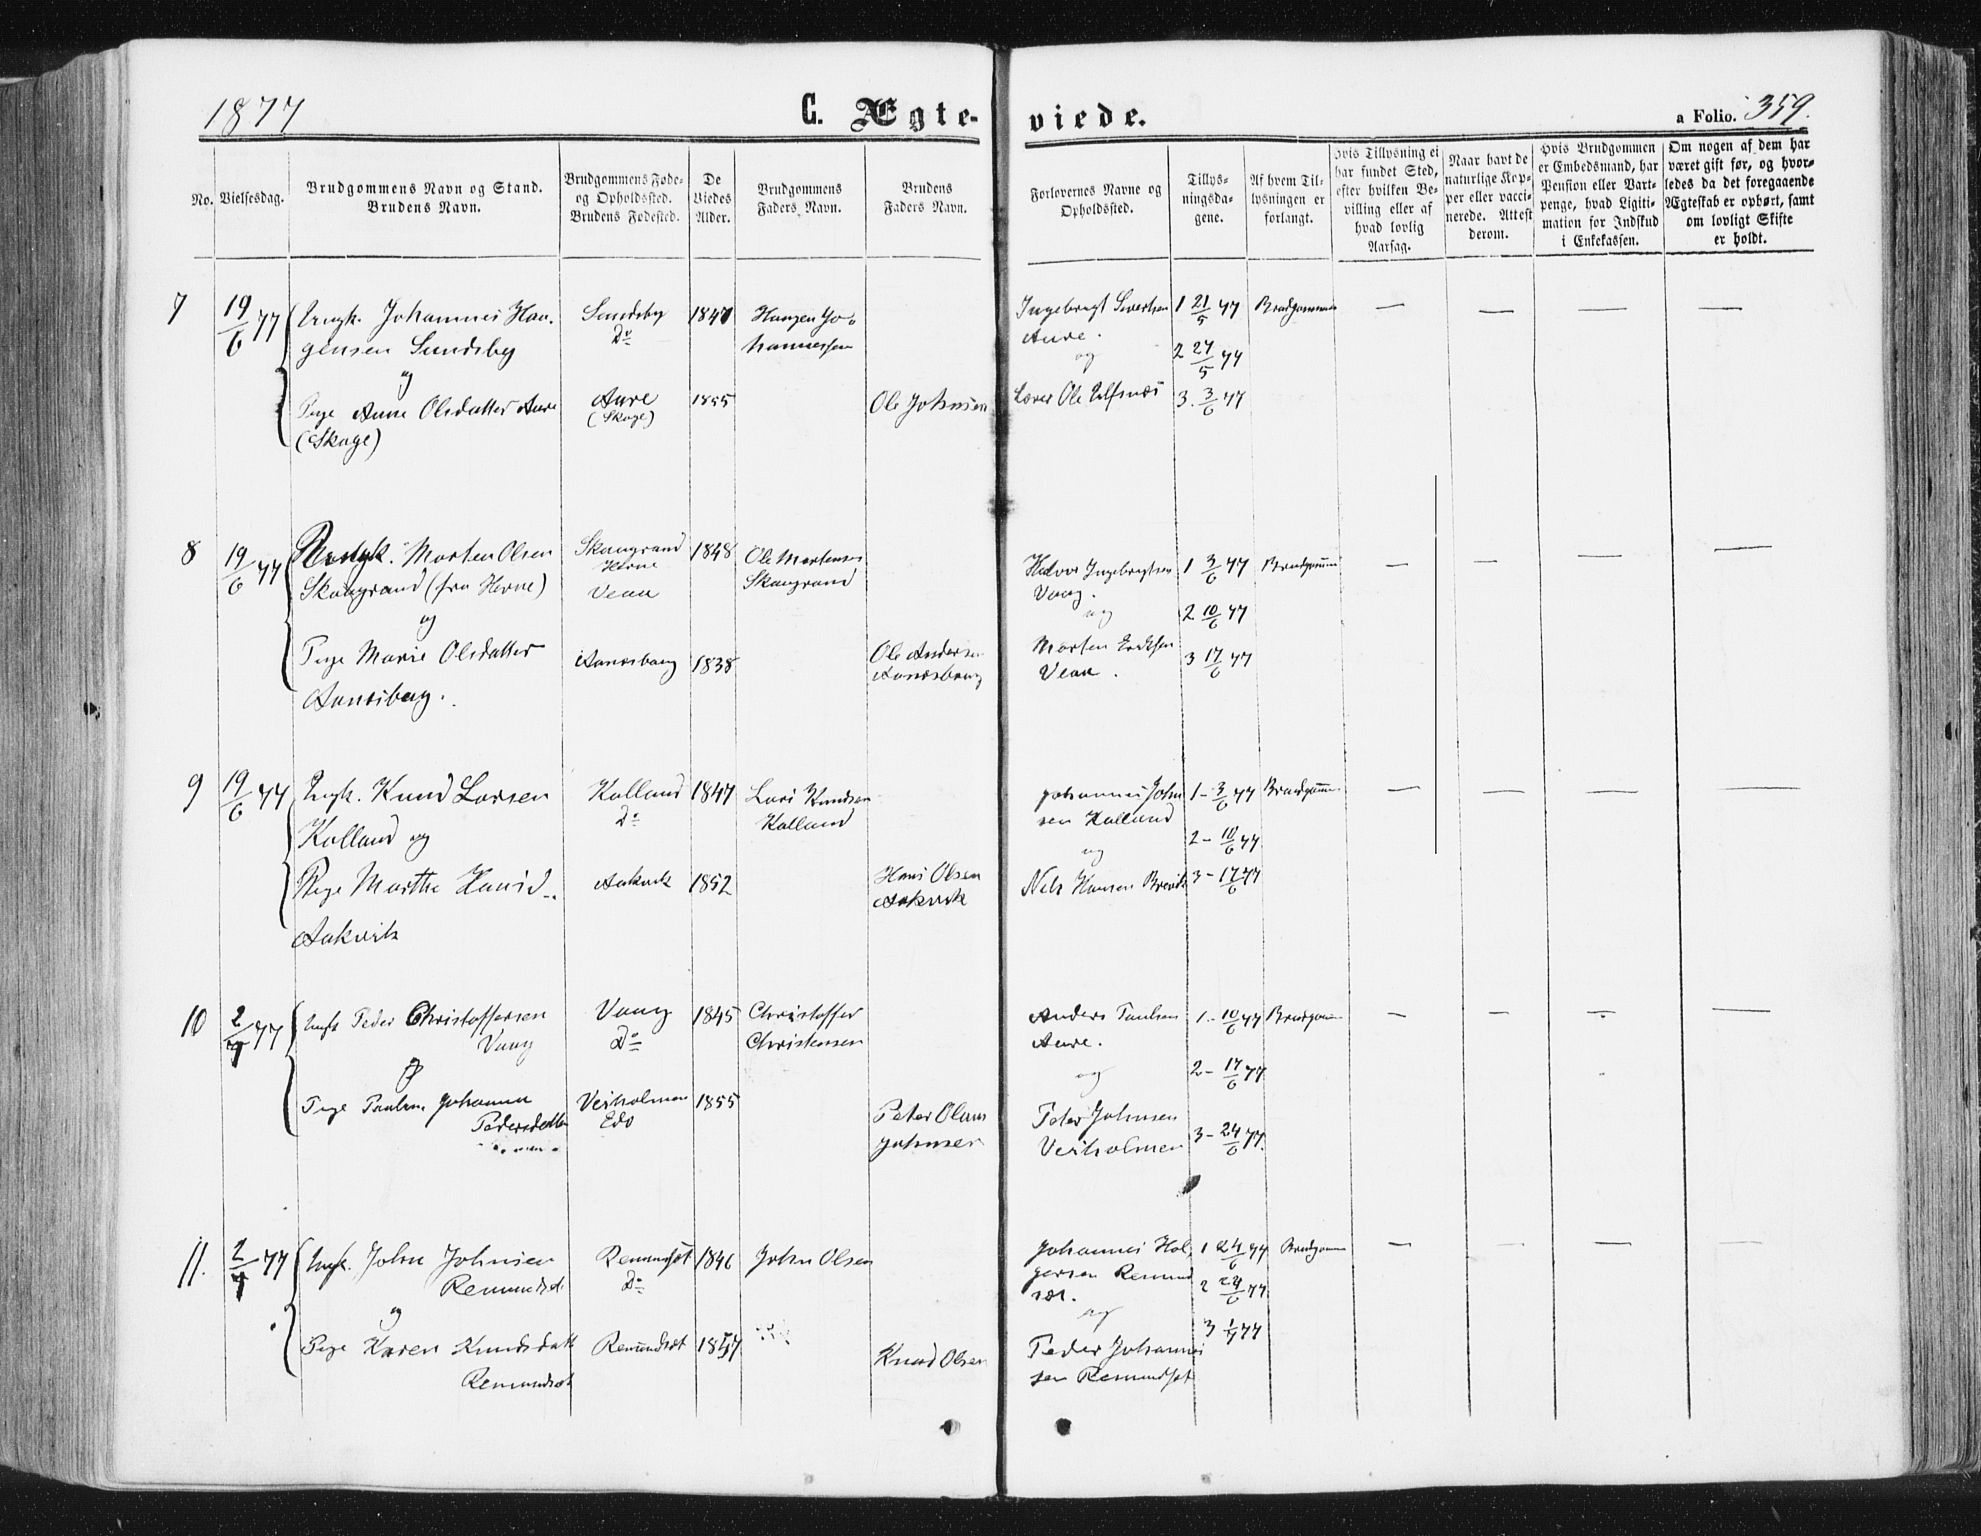 1877
C. Ægte-
viede.
a Folio. 359.
No.
Vielsesdag.
Brudgommens Navn og Stand.
Brudens Navn.
Brudgommens Føde-
og Opholdssted.
Brudens Fødested.
De
Viedes
Alder.
Brudgommens
Faders Navn.
Brudens
Faders Navn.
Forlovernes Navne og
Opholdssted.
Tillys-
ningsda-
gene.
Af hvem Til-
lysningen er
forlangt.
Hvis Tillysning ei
har fundet Sted,
efter hvilken Be-
villing eller af
hvad lovlig
Aarsag.
Naar havt de
naturlige Kop-
per eller vacci-
nerede. Attest
derom.
Hvis Brudgommen
er Embedsmand, har
Pension eller Vart-
penge, hvad Ligiti-
mation for Indskud
i Enkekassen.
Om nogen af dem har
været gift før, og hvor-
ledes da det foregaaende
Ægteskab er ophørt, samt
om lovligt Skifte
er holdt.
7
19/6 77
Ungk. Johannes Hau-
gensen Sundsby
og
Pige Anne Olsdatter Aure
(Skage)
Sundsby
Do
Aure
(Skage)
1847
1855
Haagen Jo-
hannessen
Ole Johnsen
Ingebrigt Sivertsen
Aure.
og
Lærer Ole Ulfsnes
1 21/5 77
2 27/5 77
3. 3/6 77
Brudgommen
— — — —
8
19/6 77
Ungk. Morten Olsen
Skaugrand (fra Hevne)
og
Pige Marie Olsdatter
Aanesbaug.
Skaugrand
Hevne
Vean
Aanesbaug
1848
1838
Ole Mortensen
Skaugrand
Ole Andersen
Aanesbaug
Halvor Ingebrigtsen
Vaag.
og
Morten Eriksen
Vean.
1 3/6 77
2 10/6 77
3 17/6 77
Brudgommen
— — — —
9
19/6 77
Ungk. Knud Larsen
Kalland og
Pige Marthe Hansd.
Aakvik
Kalland
Do
Aakvik
1847
1852
Lars Knudsen
Kalland
Hans Olsen
Aakvik
Johannes John
sen Kalland
og
Nels Hansen Brevik
1 - 3/6 77
2 - 10/6 77
3 - 17/6 77
Brudgommen
— — — —
10
2/7 77
Ungk Peder Christoffersen
Vaag
og
Pige Pauline Johanna
Pedersdatter
Vaag
Do
Veiholmen
Edø
1845
1855
Christoffer
Christensen
Peter Olaus
Johnsen
Anders Paulsen
Aure.
og
Peter Johnsen
Veiholmen
1 - 10/6 77
2 - 17/6 77
3 - 24/6 77.
Brudgommen
— — — —
11.
2/7 77
Ungk. John Johnsen
Remundset
og
Pige Karen Knudsdatt
Remundset
Remundset
Do
Remundset
1846
1857
John Olsen
Knud Olsen
Johannes Hol
gersen Remund
set.
og
Peder Johannes
sen Remundset
1 24/6 77
2 24/6 77
3 1/7 77
Brudgommen
— — — —